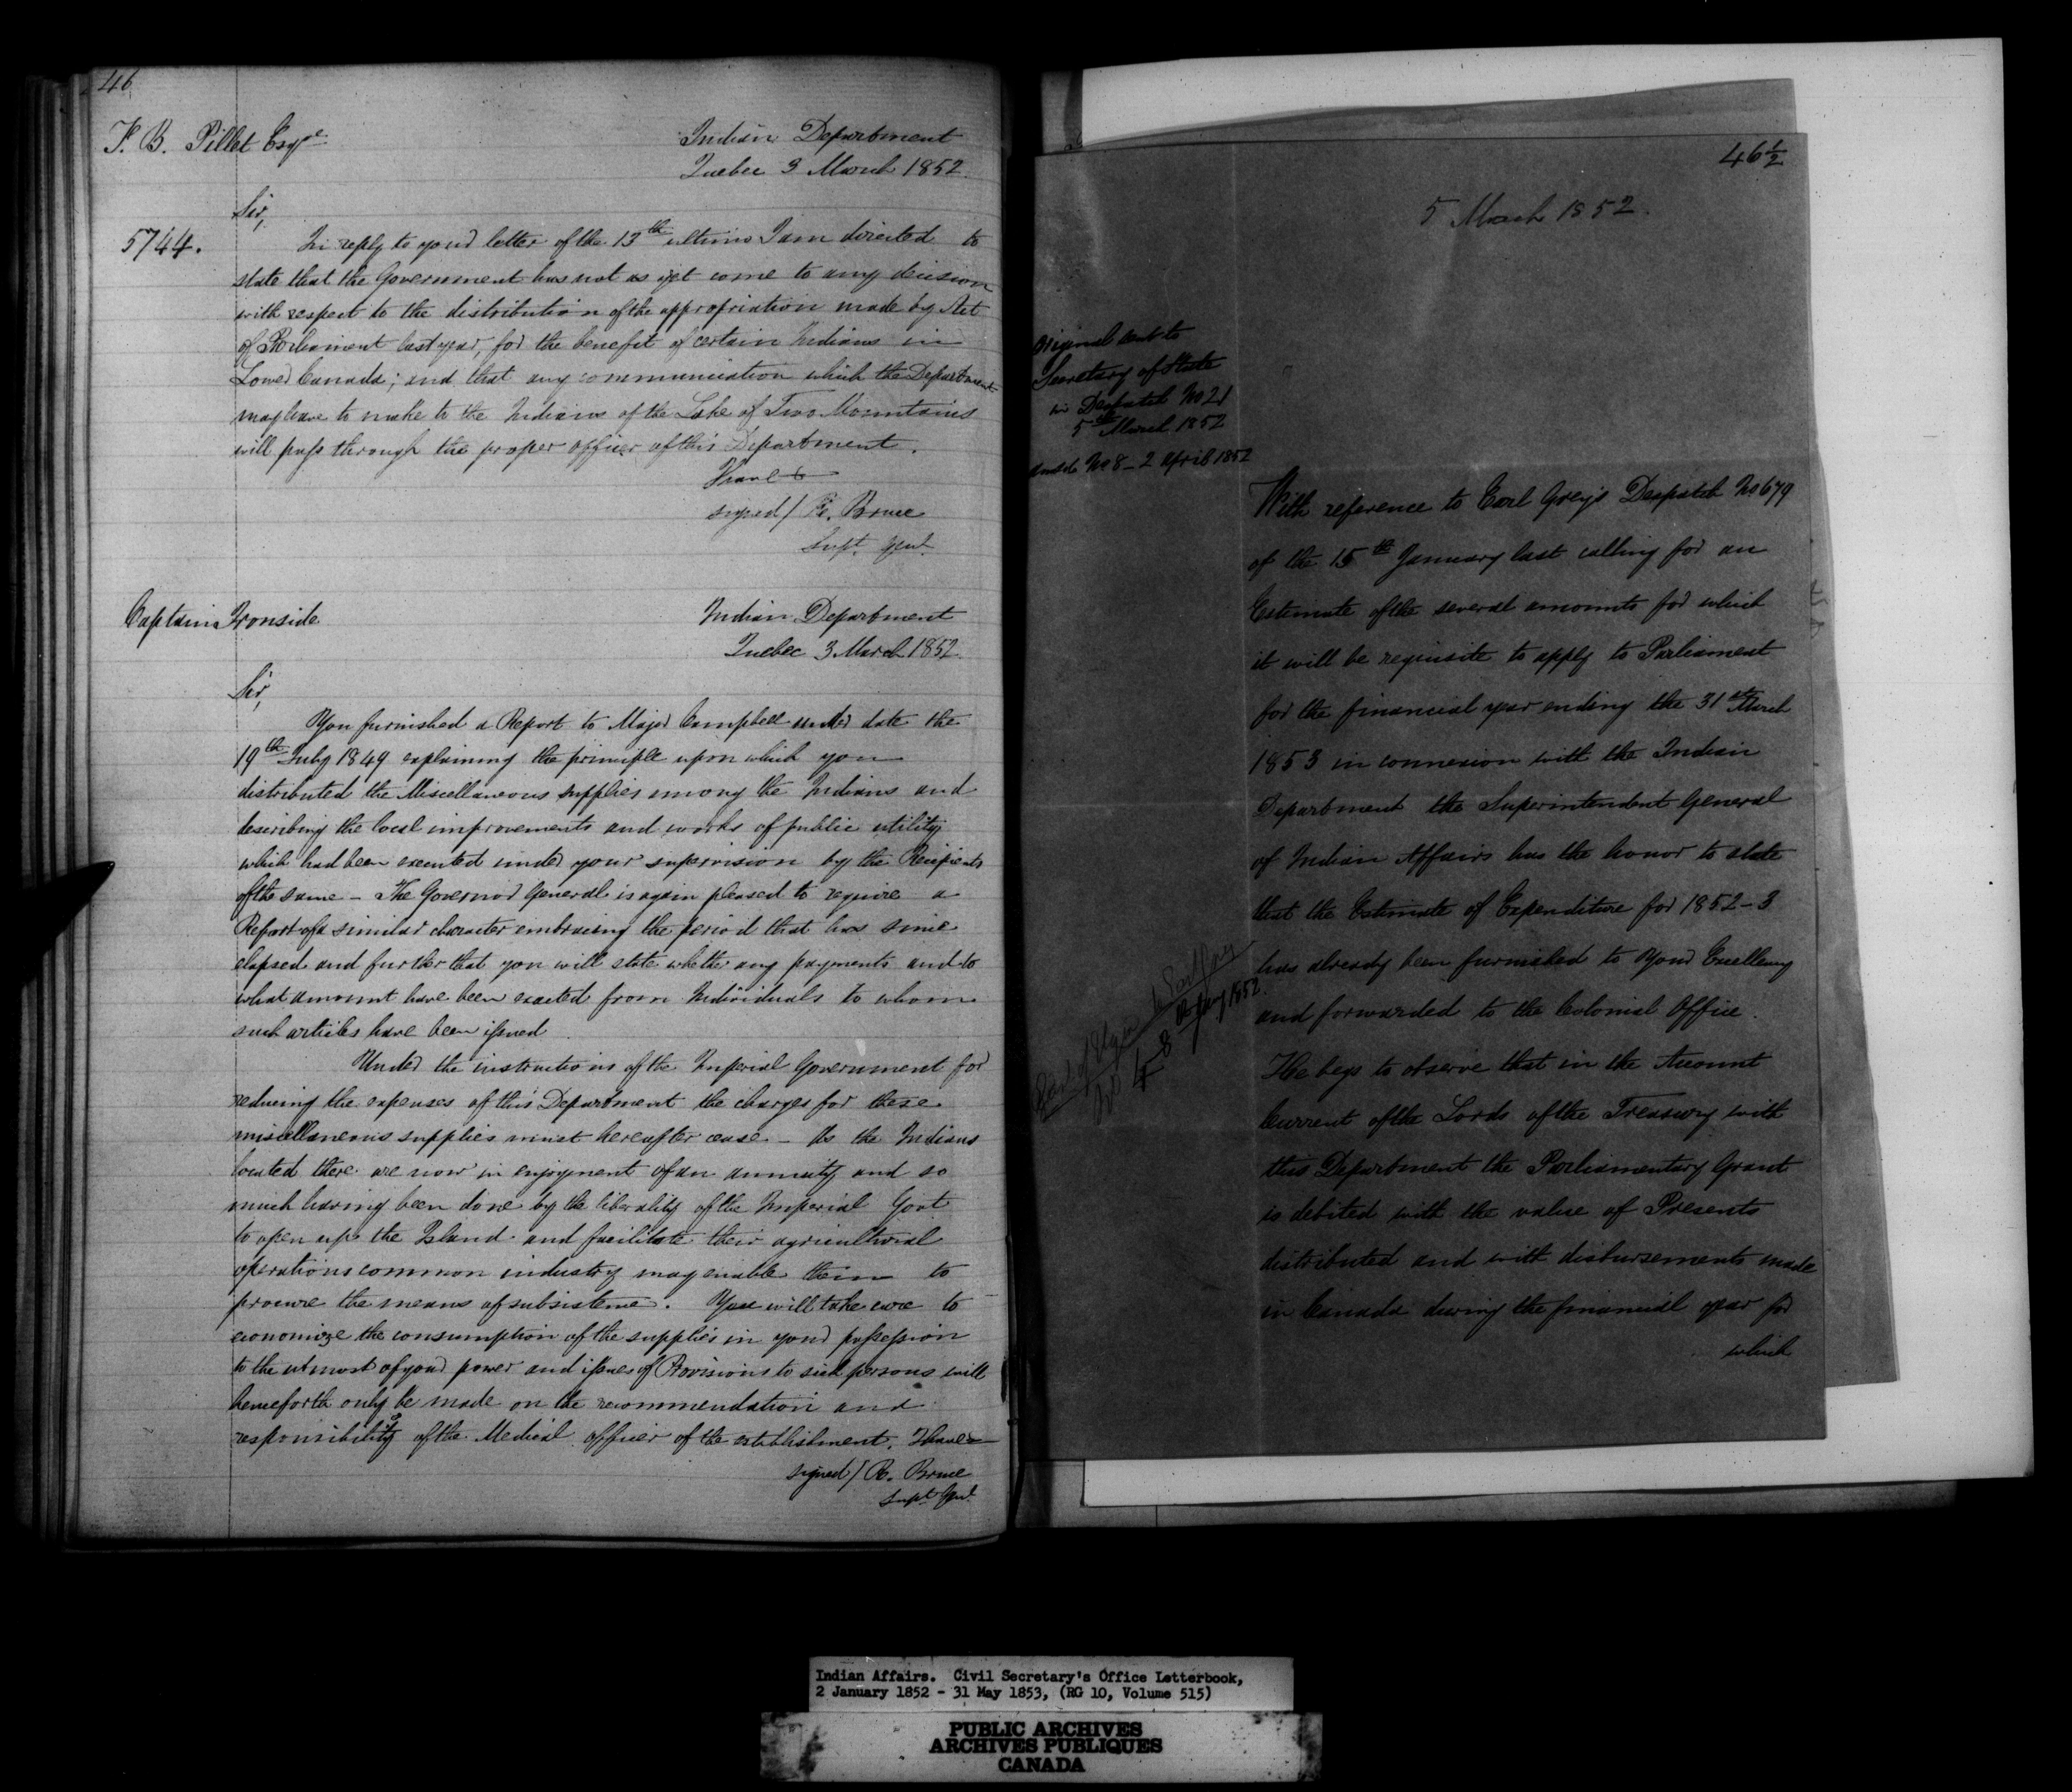 46
F. B. Pillet Esqre
Indian Department
Quebec 3 March 1852.
Sir,
5744.
In reply to your letter of the 13th ultimo I am directed to
state that the Government has not as yet come to any decision
with respect to the distribution of the appropriation made by Act
of Parliament last year, for the benefit of certain Indians in
Lower Canada; and that any communication which the Department
may have to make to the Indians of the Lake of Two Mountains
will pass through the proper officer of this Department.
I have &
signed/ R. Bruce
Supt. Genl.
Captain Ironside
Indian Department
Quebec 3 March 1852.
Sir,
You furnished a Report to Major Campbell under date the
19th July 1849 explaining the principle upon which you
distributed the Miscellaneous supplies among the Indians and
describing the local improvements and works of public utility
which had been executed under your supervision by the Recipients
of the same - The Governor General is again pleased to require a
Report of a similar character embracing the period that has since
elapsed and further that you will state whether any payments and to
what amount have been exacted from Individuals to whom
such articles have been issued
Under the instructions of the Imperial Government for
reducing the expenses of this Department the charges for these
miscellaneous supplies must hereafter cease - As the Indians
located there are now in enjoyment of an annuity and so
much having been done by the liberality of the Imperial Govt
to open up the Island and facilitate their agricultural
operations common industry may enable them to
procure the means of subsistence. You will take care to
economize the consumption of the supplies in your possession
to the utmost of your power and issues of Provisions to sick persons will
henceforth only be made on the recommendation and
responsibility of the Medical officer of the establishment. I have &
signed/ R. Bruce
Supt Genl.
46 1/2
5 March 1852.
Original sent to
Secretary of State
in Despatch No 21
5th March 1852
No 8 - 2 April 1852
With reference to Earl Grey's Despatch No 679
of the 15th January last calling for an
Estimate of the several amounts for which
it will be requisite to apply to Parliament
for the financial year ending the 31st March
1853 in connexion with the Indian
Department the Superintendent General
of Indian Affairs has the honor to state
that the Estimate of Expenditure for 1852-3
has already been furnished to Your Excellency
and forwarded to the Colonial Office.
He begs to observe that in the Account
Current of the Lords of the Treasury with
this Department the Parliamentary Grant
is debited with the value of Presents
distributed and with disbursements made
in Canada during the financial year for
which
Indian Affairs. Civil Secretary's Office Letterbook,
2 January 1852 - 31 May 1853, (RG 10, Volume 515)
PUBLIC ARCHIVES
ARCHIVES PUBLIQUES
CANADA